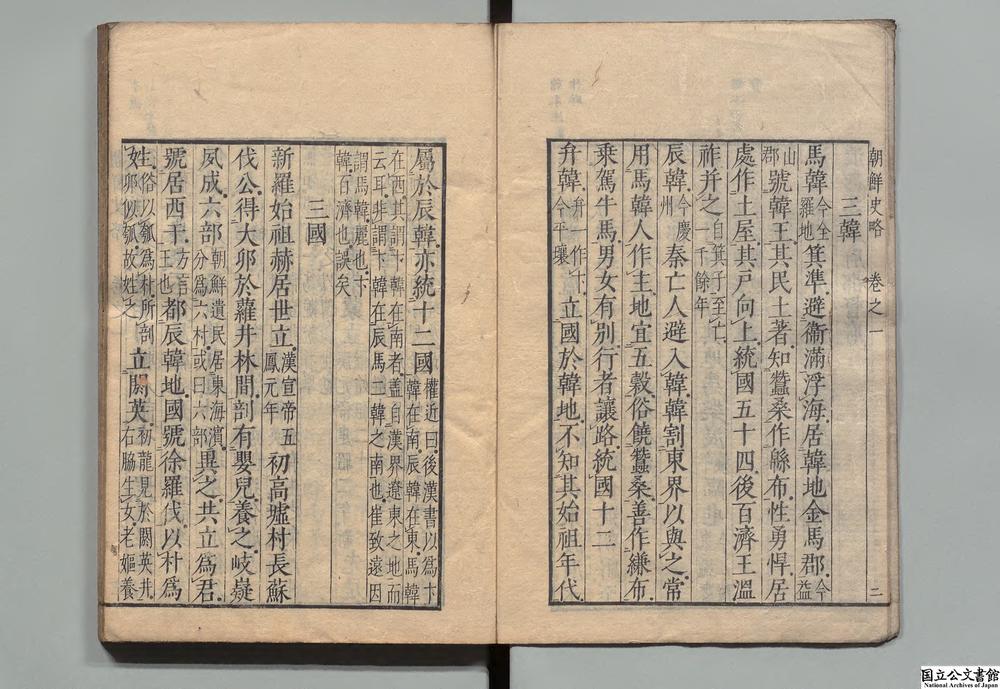 朝鮮史略 卷之一 二
三韓
馬韓今全羅地箕準避衞滿浮海居韓地金馬郡今益
山郡號韓王其民土著知蠶桑作緜布性勇悍居
處作土屋其戶向上統國五十四後百濟王溫
祚并之自箕子至亡一千餘年
辰韓今慶州秦亡人避入韓韓割東界以與之常
用馬韓人作主地宜五穀俗饒蠶桑善作縑布
乘駕牛馬男女有別行者讓路統國十二
弁韓弁一作卞今平壤立國於韓地不知其始祖年代
屬於辰韓亦統十二國權近曰後漢書以爲卞韓在南辰韓在東馬韓
在西其謂卞韓在南者盖自漢界遼東之地而云耳非謂卞韓在辰馬二韓之南也崔致遠因
謂馬韓麗也卞韓百濟也誤矣
三國
新羅始祖赫居世立漢宣帝五鳳元年初高墟村長蘇
伐公得大卵於蘿井林間剖有嬰兒養之岐嶷
夙成六部朝鮮遺民居東海濱分爲六村或曰六部異之共立爲君
號居西干方言王也都辰韓地國號徐羅伐以朴爲
姓俗以瓠爲朴所剖卵似瓠故姓之立閼英初龍見於閼英井右脇生女老嫗養
国立公文書館
National Archives of Japan